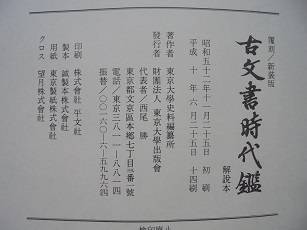 覆刻/新装版
古文書時代鑑 解説本
昭和五十二年十一月二十五日 初刷
平成十年六月二十五日 十四刷
著作者 東京大學史料編纂所
發行者 財團法人 東京大学出版會
代表者 西尾 勝
東京都文京區本郷七丁目三番一號
電話/東京三八一一-八八一四
振替/〇〇一六〇-六-五九九六四
印刷 株式會社 平文社
製本 誠製本株式會社
用紙 東京製紙株式會社
クロス 望月株式會社